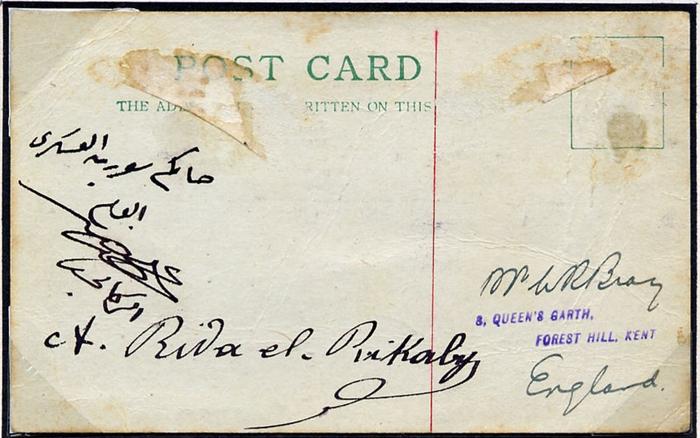 POST CARD
THE AD RITTEN ON THIS
حاكم سورية العسكري
العام
الركابي
A. Rida el-Rikaby
Mr W R Bray
8, QUEEN'S GARTH,
FOREST HILL, KENT
England.